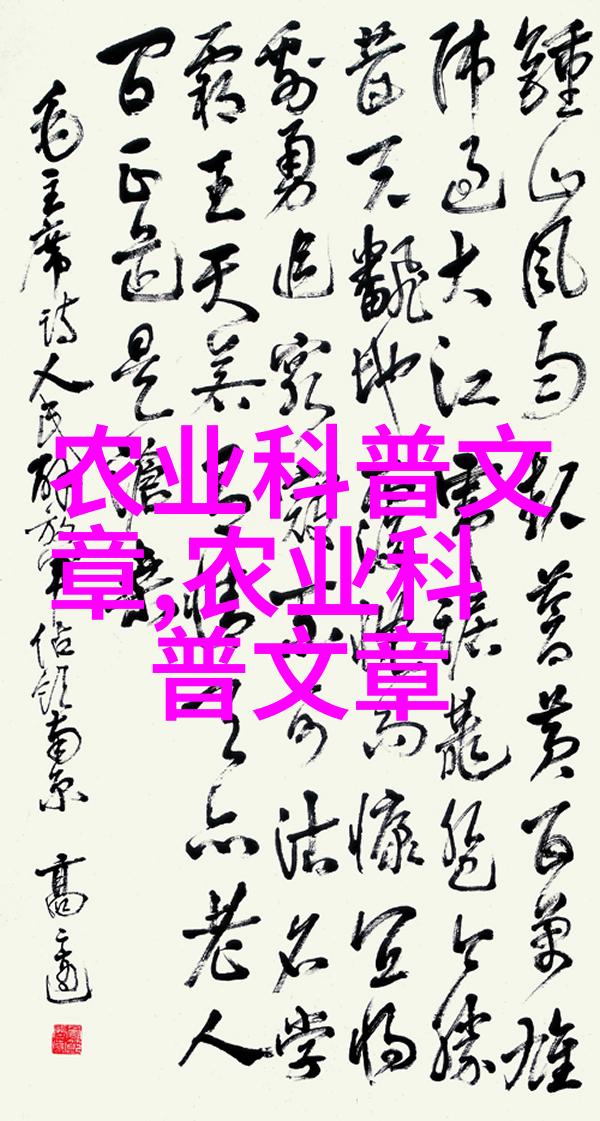 鍾山风雨起苍黄百萬雄
师过大江虎踞龍盘今勝
昔天飜地覆慨而慷宜将
剩勇追穷寇不可沽名学
霸王天若有情天亦老人
间正道是滄桑
毛主席诗人民解放军佔领南京 高
农业科普文
章,农业科
普文章